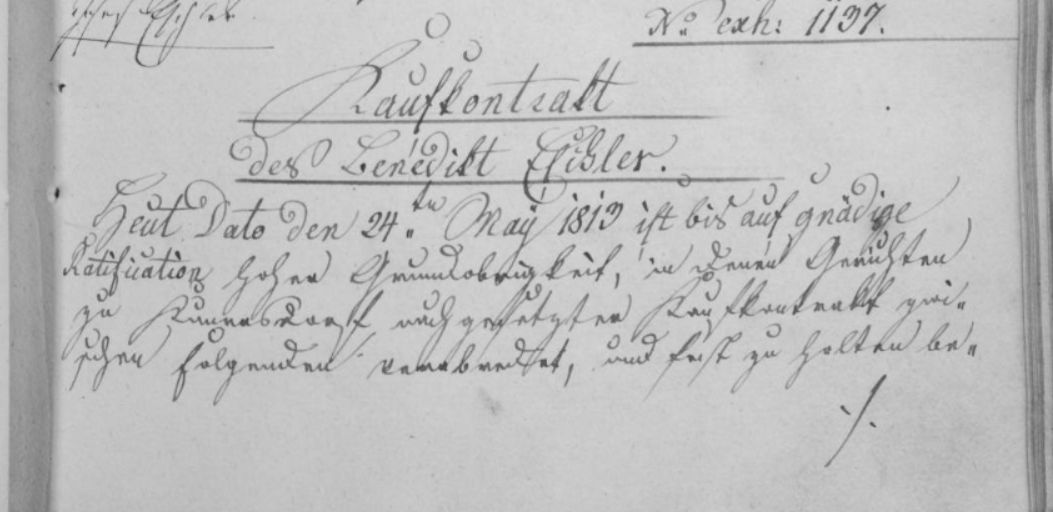 No: exh: 1137.
Kaufkontrakt
des Benedikt Elßler.
Heut Dato den 24.ten Maÿ 1813 ist bis auf gnädige
Ratification hoher Grundobrigkeit, in denen Gerichten
zu Kunnersdorf nachgesetzter Kaufkontrakt zwi-
schen folgenden verabredet, und fest zu halten be-
./.